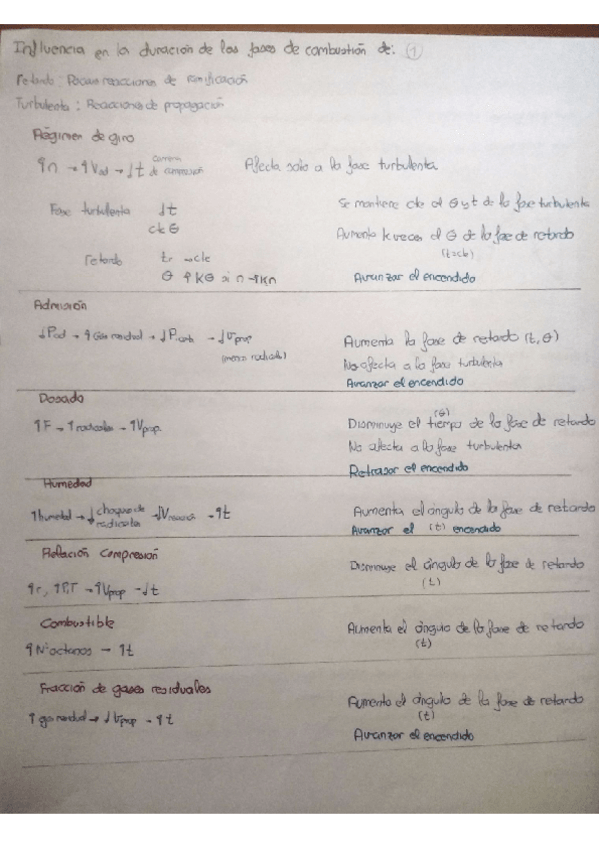 Influencia en la duración de las fases de combustión de: ①
Retardo: Pocas reacciones de ramificación
Turbulenta: Reacciones de propagación
Régimen de giro
↑n → ↑Vad → ↓t carrera de compresión Afecta solo a la fase turbulenta
Fase turbulenta ↓t
ck θ
Se mantiene cte el θ y t de la fase turbulenta
Aumenta k veces el θ de la fase de retardo
(t=ck)
retardo tr → cte
θ ↑ kθ si n → ↑kn
Avanzar el encendido
Admisión
↓Pad → ↑Gas residual → ↓P → ↓Vprop
(menos radicales)
Aumenta la fase de retardo (t, θ)
No afecta a la fase turbulenta
Avanzar el encendido
Dosado
↑F → ↑radicales → ↑Vprop.
Disminuye el tiempo (θ) de la fase de retardo
No afecta a la fase turbulenta
Retrasar el encendido
Humedad
↑humedad → ↓choque de radicales → ↓Vreacción → ↑t
Aumenta el ángulo de la fase de retardo
Avanzar el (t) encendido
Relación compresión
↑r, ↑P,T → ↑Vprop → ↓t
Disminuye el ángulo de la fase de retardo
(t)
Combustible
↑Nºoctanos → ↑t
Aumenta el ángulo de la fase de retardo
(t)
Fracción de gases residuales
↑gas residual → ↓Vprop → ↑t
Aumenta el ángulo de la fase de retardo
(t)
Avanzar el encendido